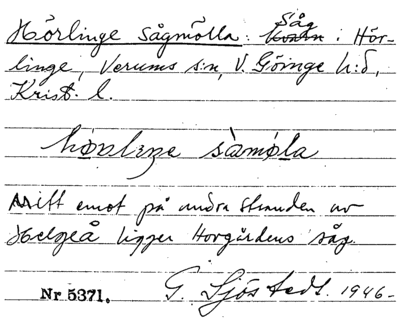 Hörlinge sågmölla: Såg i Hör-
linge, Verums s:n, V. Göinge h:d,
Krist. l.
hørlıŋe sàmøla
Mitt emot på andra stranden av
Helgeå ligger Horgårdens såg.
Nr 5371. G. Sjöstedt. 1946-